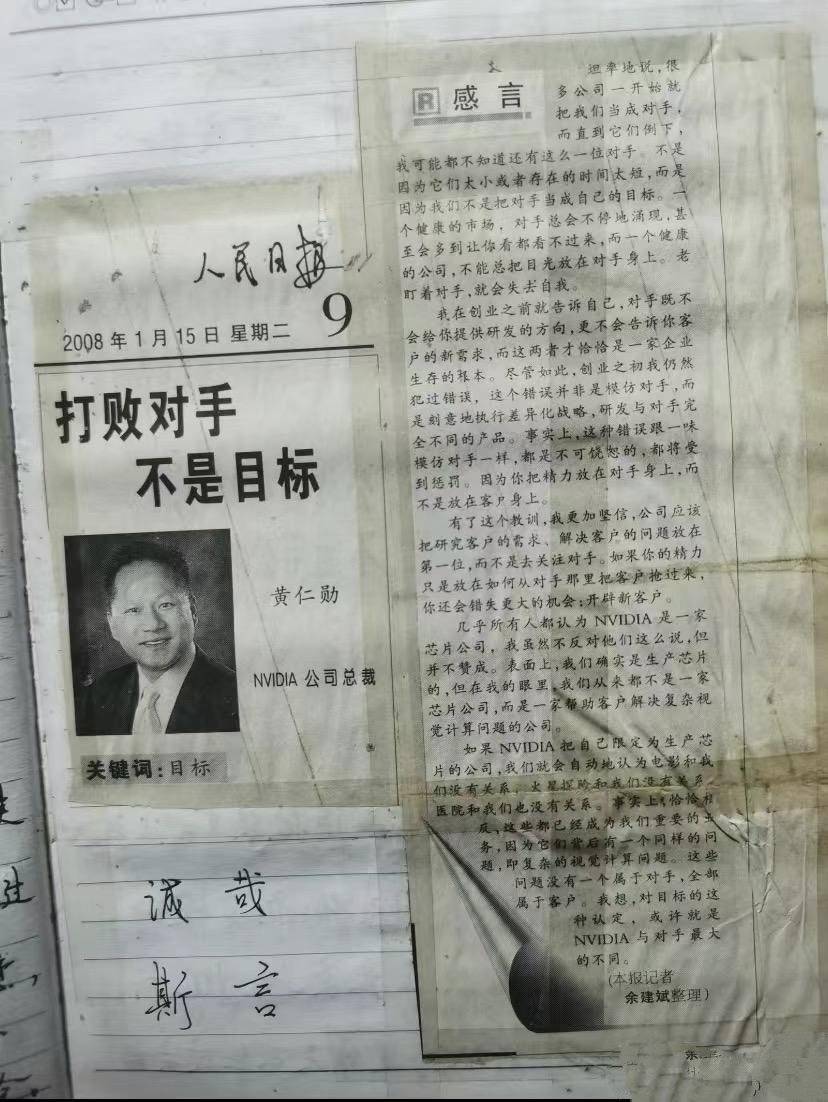 人民日报
2008年1月15日 星期二 9
打败对手
不是目标
黄仁勋
NVIDIA 公司总裁
关键词:目标
诚哉
斯言
R 感言
坦率地说,很
多公司一开始就
把我们当成对手,
而直到它们倒下,
我可能都不知道还有这么一位对手。不是
因为它们太小或者存在的时间太短,而是
因为我们不是把对手当成自己的目标。一
个健康的市场,对手总会不停地涌现,甚
至会多到让你看都看不过来,而一个健康
的公司,不能总把目光放在对手身上。老
盯着对手,就会失去自我。
我在创业之前就告诉自己,对手既不
会给你提供研发的方向,更不会告诉你客
户的新需求,而这两者才恰恰是一家企业
生存的根本。尽管如此,创业之初我仍然
犯过错误,这个错误并非是模仿对手,而
是刻意地执行差异化战略,研发与对手完
全不同的产品。事实上,这种错误跟一味
模仿对手一样,都是不可饶恕的,都将受
到惩罚。因为你把精力放在对手身上,而
不是放在客户身上。
有了这个教训,我更加坚信,公司应该
把研究客户的需求、解决客户的问题放在
第一位,而不是去关注对手。如果你的精力
只是放在如何从对手那里把客户抢过来,
你还会错失更大的机会:开辟新客户。
几乎所有人都认为 NVIDIA 是一家
芯片公司,我虽然不反对他们这么说,但
并不赞成。表面上,我们确实是生产芯片
的,但在我的眼里,我们从来都不是一家
芯片公司,而是一家帮助客户解决复杂视
觉计算问题的公司。
如果 NVIDIA 把自己限定为生产芯
片的公司,我们就会自动地认为电影和我
们没有关系,火星探险和我们没有关系,
医院和我们也没有关系。事实上,恰恰相
反,这些都已经成为我们重要的业
务,因为它们背后有一个同样的问
题,即复杂的视觉计算问题。这些
问题没有一个属于对手,全部
属于客户。我想,对目标的这
种认定,或许就是
NVIDIA 与对手最大
的不同。
(本报记者
余建斌整理)